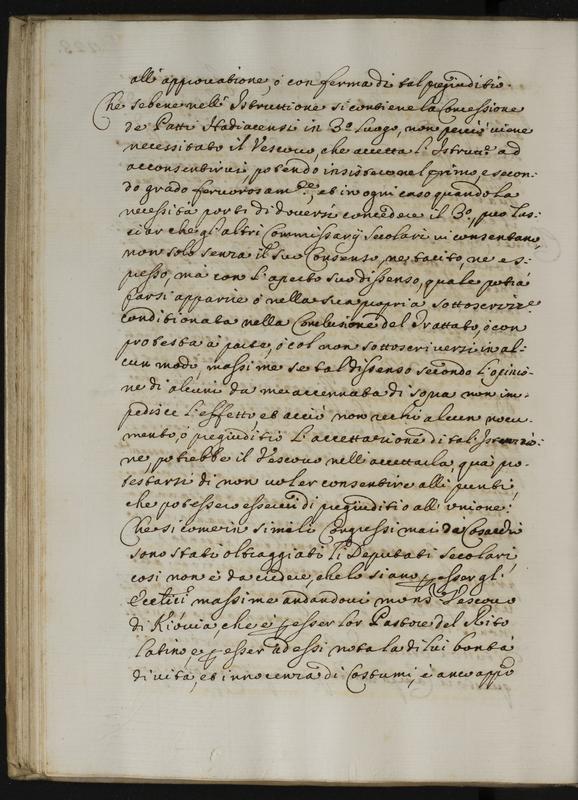 all'approvatione, ò conferma di tal pregiuditio.
Che sebene nell'Istruttione si contiene la Concessione
de Patti Hadiacensi in 3º luogo, non perciò viene
necessitato il Vescovo, che accetta l'Istrutne ad
acconsentirvi, potendo insistere nel primo, e secon-
do grado fervorosamte, et in ogni caso quando la
necessità porti di doversi concedere il 3º, puo las-
ciar che gl'altri Commissarij Secolari vi consentano,
non solo senza il suo Consenso, ne tacito, ne es-
presso, ma con l'aperto suo dissenso, quale potrà
farsi apparire ò nella sua propria sottoscrizne
conditionata nella Conclusione del Trattato, ò con
protesta à parte, ò col non sottoscriversi in al-
cun modo, massime se tal dissenso secondo l'opinio-
ne di alcuni da me accennata di sopra non im-
pedisce l'effetto, et acciò non rechi alcun nocu-
mento, ò pregiuditio l'accettazione di tal'Istruzzio-
ne, potrebbe il Vescovo nell'accettarla quà pro-
testarsi di non voler consentire alli punti,
che potessero esservi di pregiuditio all'unione.
Che si come in simili Congressi mai da Cosacchi
sono stati oltraggiati li Deputati Secolari,
così non è da credere, che lo siano per esser gl'
Ecclci massime andandovi monsr Vescovo
di Kiovia, che è per esser lor Pastore del Rito
Latino, e per esser ad essi nota la di lui bontà
di vita, et innocenza di Costumi, è anco appo